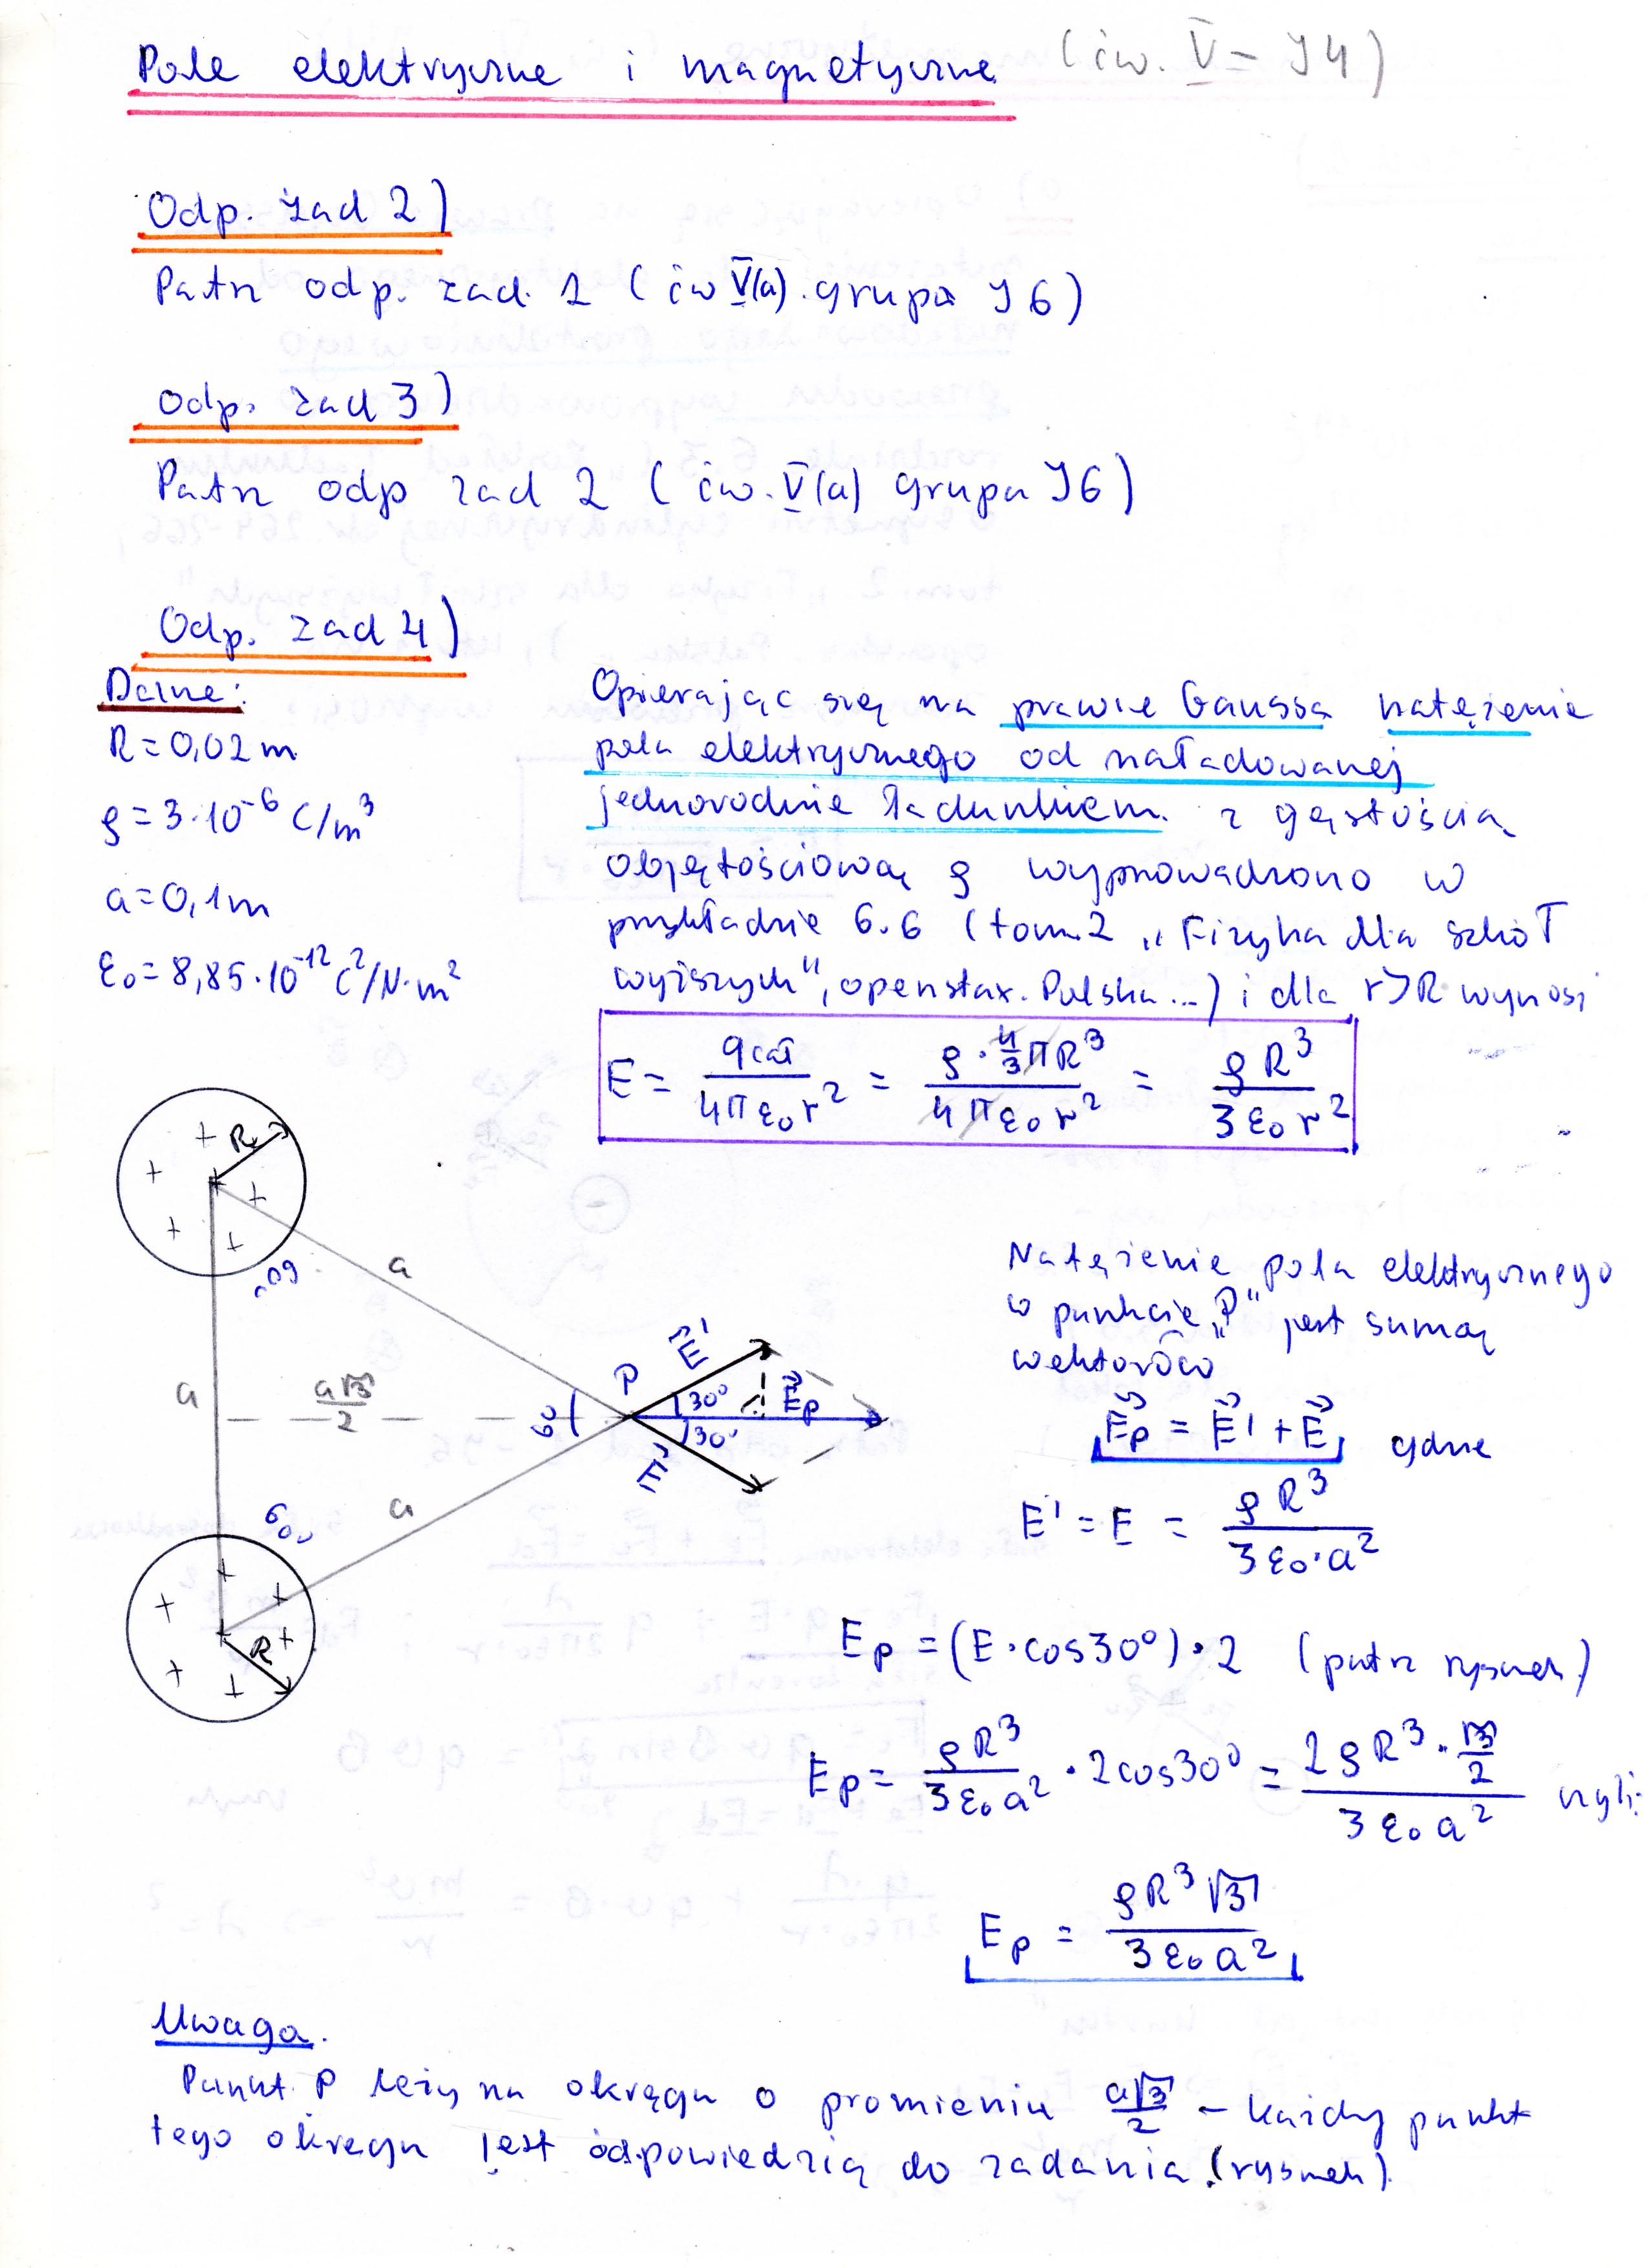 Pole elektryczne i magnetyczne (ćw. V – J4)
Odp. zad 2)
Patrz odp. zad. 1 (ćw V(a). grupa J6)
Odp. zad 3)
Patrz odp zad 2 (ćw. V(a) grupa J6)
Odp. zad 4)
Dane:
R = 0,02 m
ρ = 3·10⁻⁶ C/m³
a = 0,1 m
ε₀ = 8,85·10⁻¹² C²/N·m²
Opierając się na prawie Gaussa natężenie
pola elektrycznego od naładowanej
jednorodnie ładunkiem z gęstością
objętościową ρ wyprowadzono w
przykładzie 6.6 (tom.2 „Fizyka dla szkół
wyższych", openstax. Polska...) i dla r>R wynosi
E = qcał / 4πε₀r² = ρ·4/3πR³ / 4πε₀r² = ρR³ / 3ε₀r²
R
60°
a
a
a√3/2
60
P
E⃗'
30°
30°
E⃗p
E⃗
a
60°
R
Natężenie pola elektrycznego
w punkcie „P" jest sumą
wektorów
E⃗p = E⃗' + E⃗, gdzie
E' = E = ρR³ / 3ε₀·a²
Ep = (E·cos30°)·2 (patrz rysunek)
Ep = ρR³ / 3ε₀a² · 2cos30° = 2ρR³·√3/2 / 3ε₀a² czyli:
Ep = ρR³√3 / 3ε₀a²
Uwaga.
Punkt P leży na okręgu o promieniu a√3/2 – każdy punkt
tego okręgu jest odpowiedzią do zadania (rysunek).